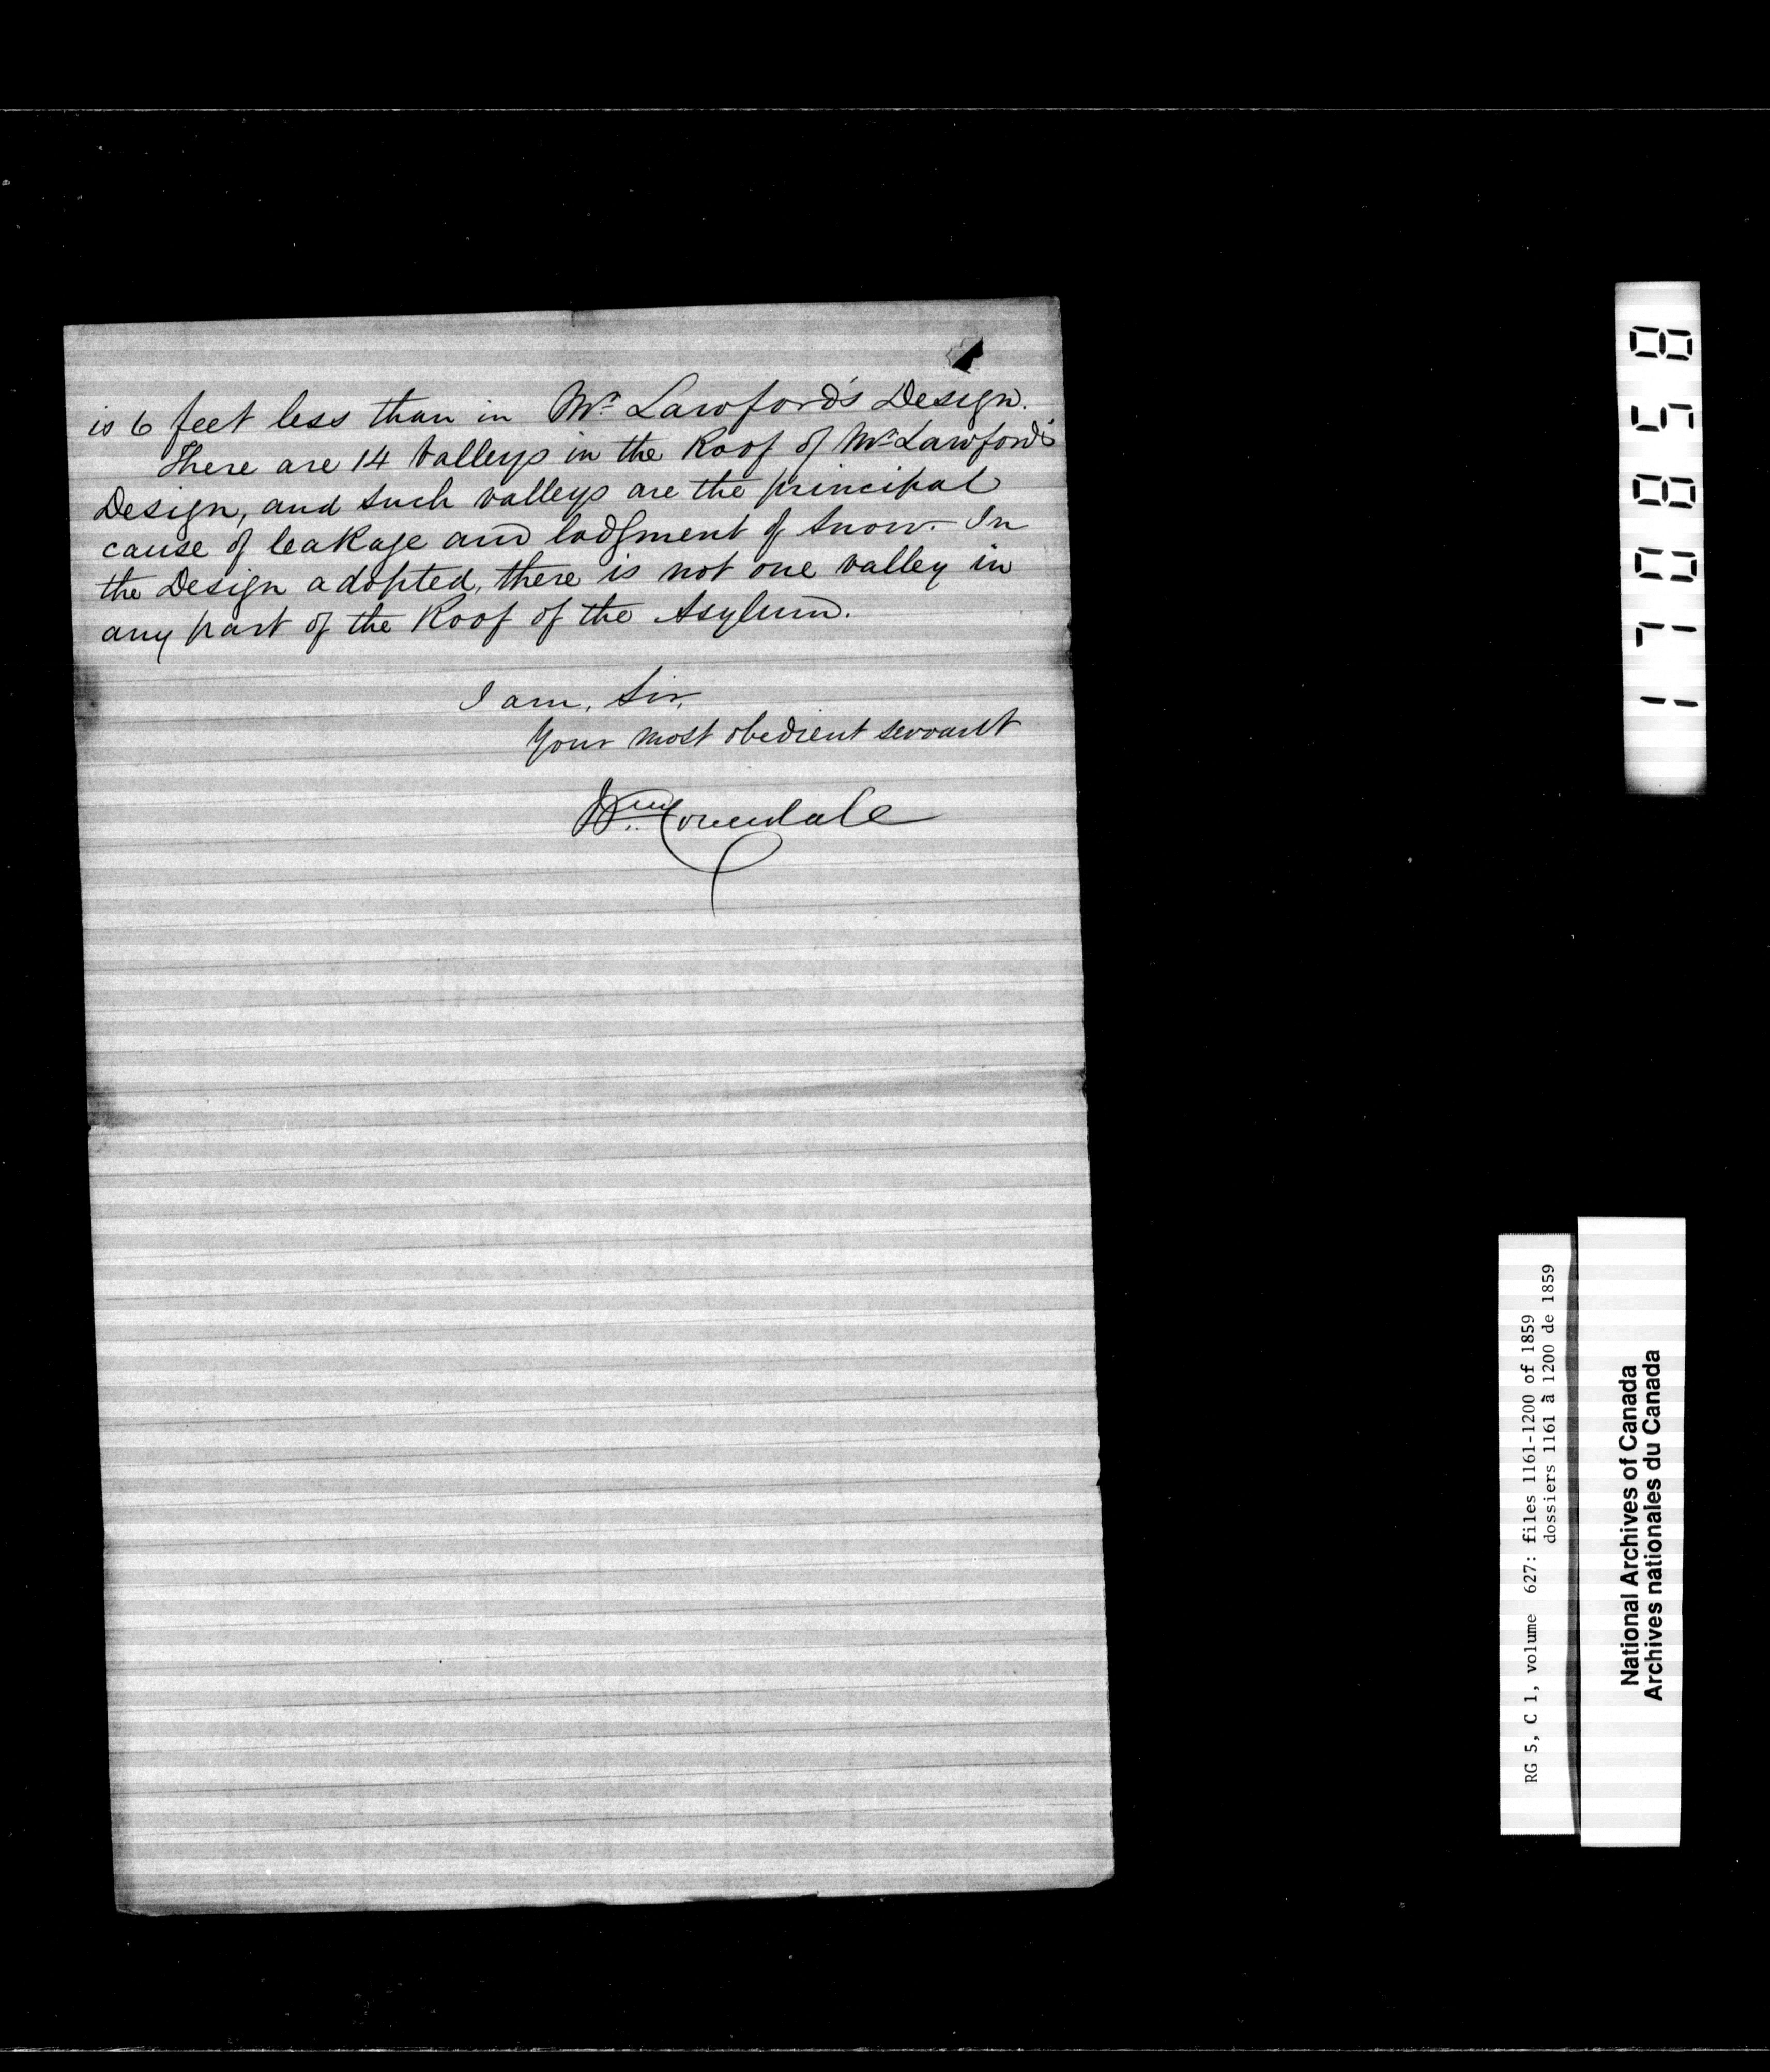 is 6 feet less than in Mr Lawford's Design.
There are 14 Valleys in the Roof of Mr Lawford's
Design, and such valleys are the principal
cause of leakage and lodgment of Snow. In
the Design adopted, there is not one valley in
any part of the Roof of the Asylum.
I am, Sir,
Your most obedient servant
Wm Coverdale
170858
RG 5, C 1, volume 627: files 1161-1200 of 1859
dossiers 1161 à 1200 de 1859
National Archives of Canada
Archives nationales du Canada